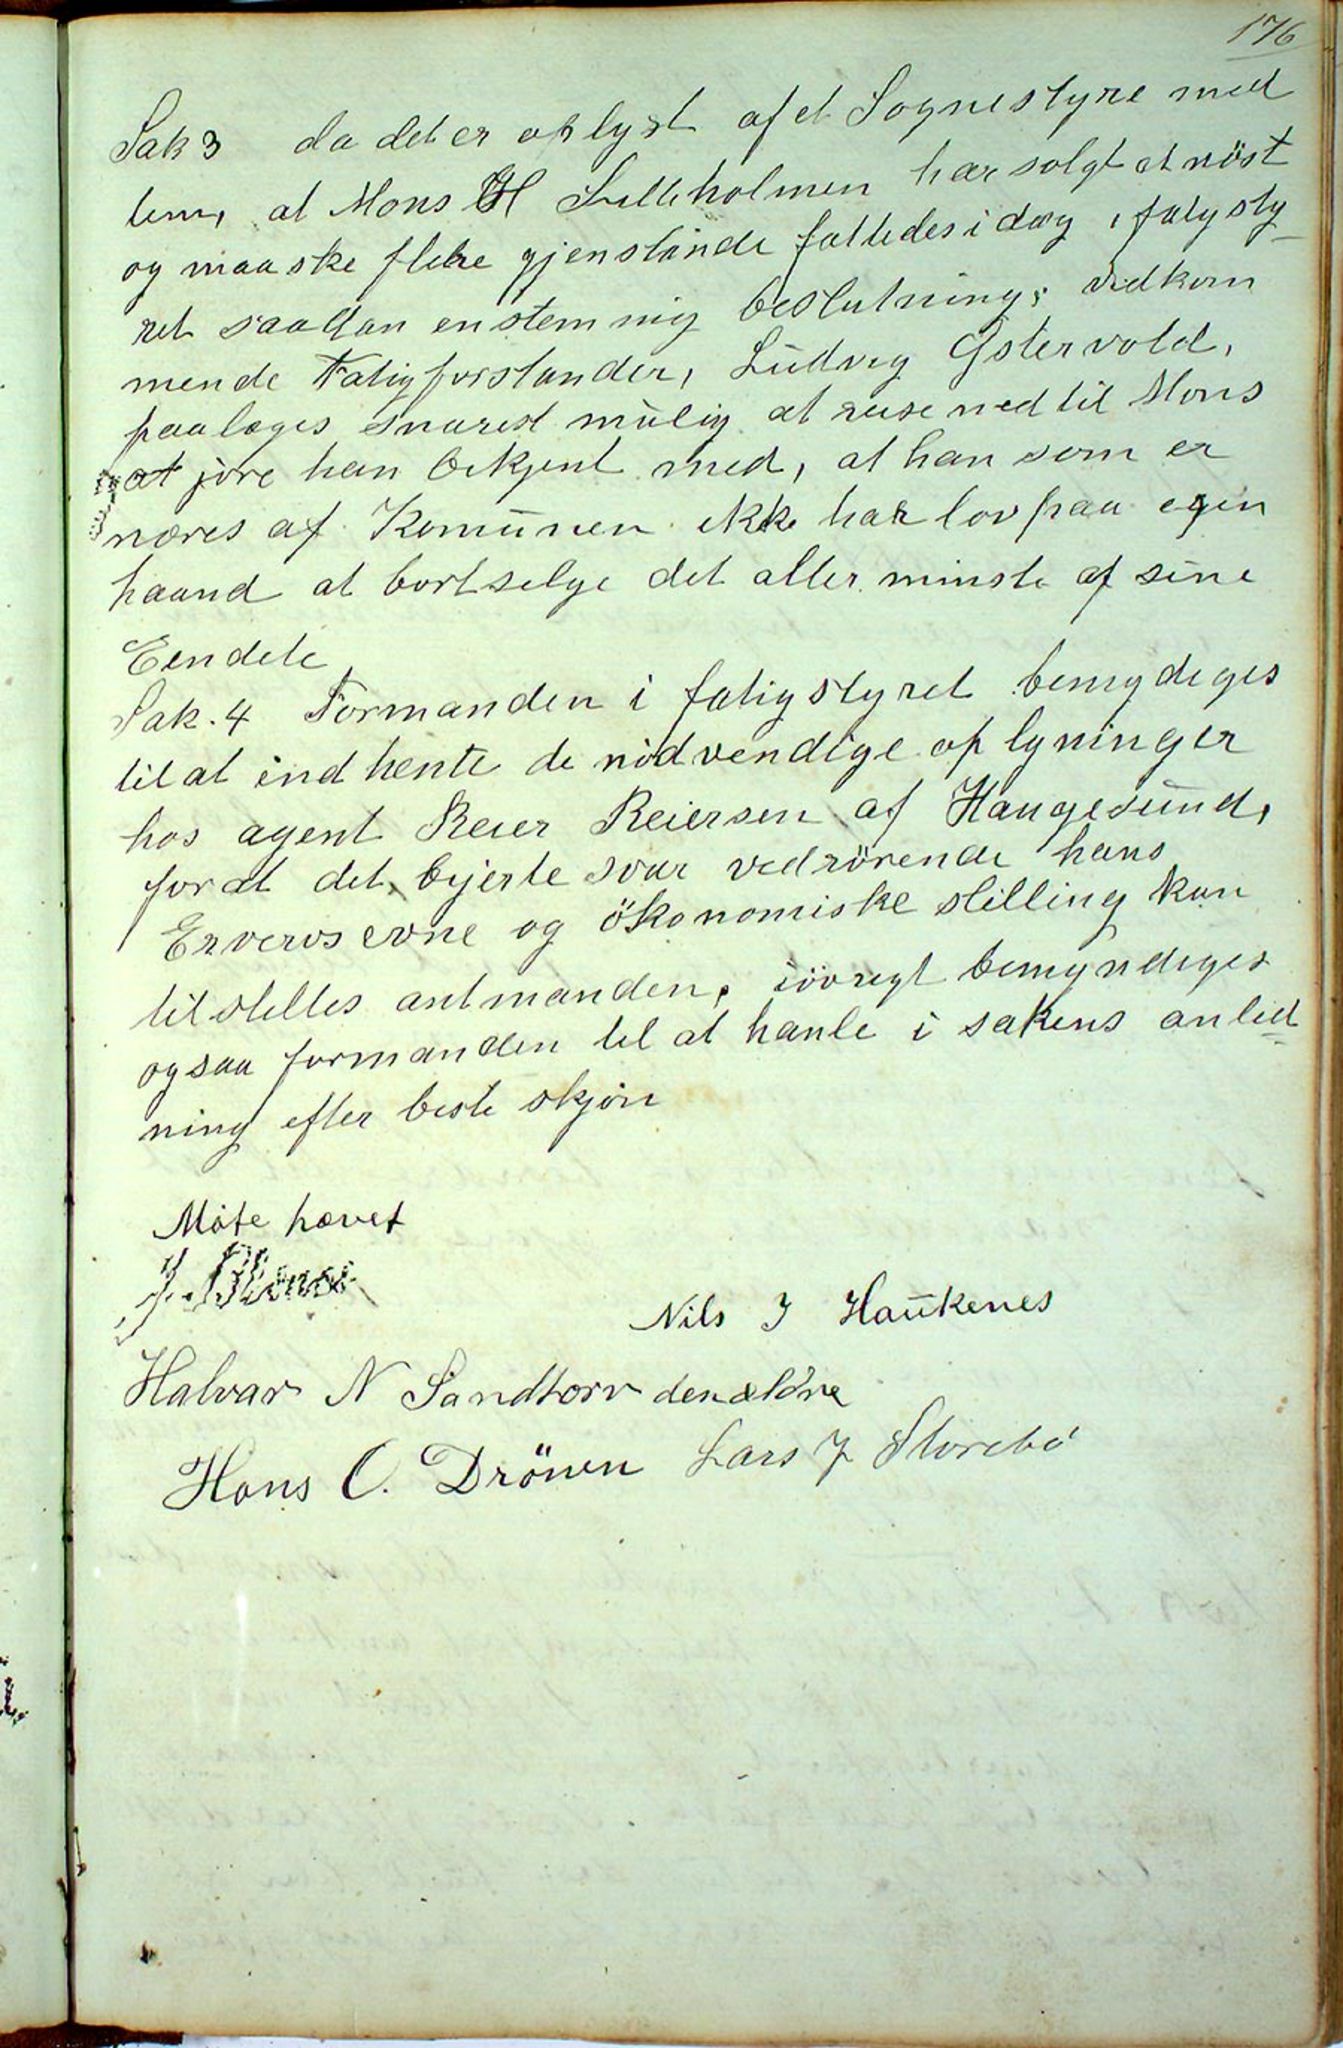 176
Sak 3 da det er oplyst af et Sognestyre med
lem, at Mons H Lilleholmen har solgt et nöst
og maaske flere gjenstande fattedes i dag i fatigsty
ret saadan enstemmig beslutning; vedkom
mende Fatigforstander, Ludvig Östervold,
paalæges snarest mulig at reise ned til Mons
at jöre han bekjent med, at han som er
næres af Komunen ikke har lov paa egen
haand at bortselge det aller minste af sine
Eendele
Sak. 4 Formanden i fatigstyret bemydiges
til at indhente de nödvendige oplyninger
hos agent Reier Reiersen af Haugesund,
forat det bejerte svar vedrörende hans
Ervervs evne og ökonomiske stilling kan
tilstilles amtmanden, iövrigt bemyndiges
ogsaa formanden til at hanle i sakens anled
ning efter beste skjön
Möte hævet
Nils J Haukenes
Halvar N Sandtorv den ældre
Hans O. Drönen Lars J Storebö